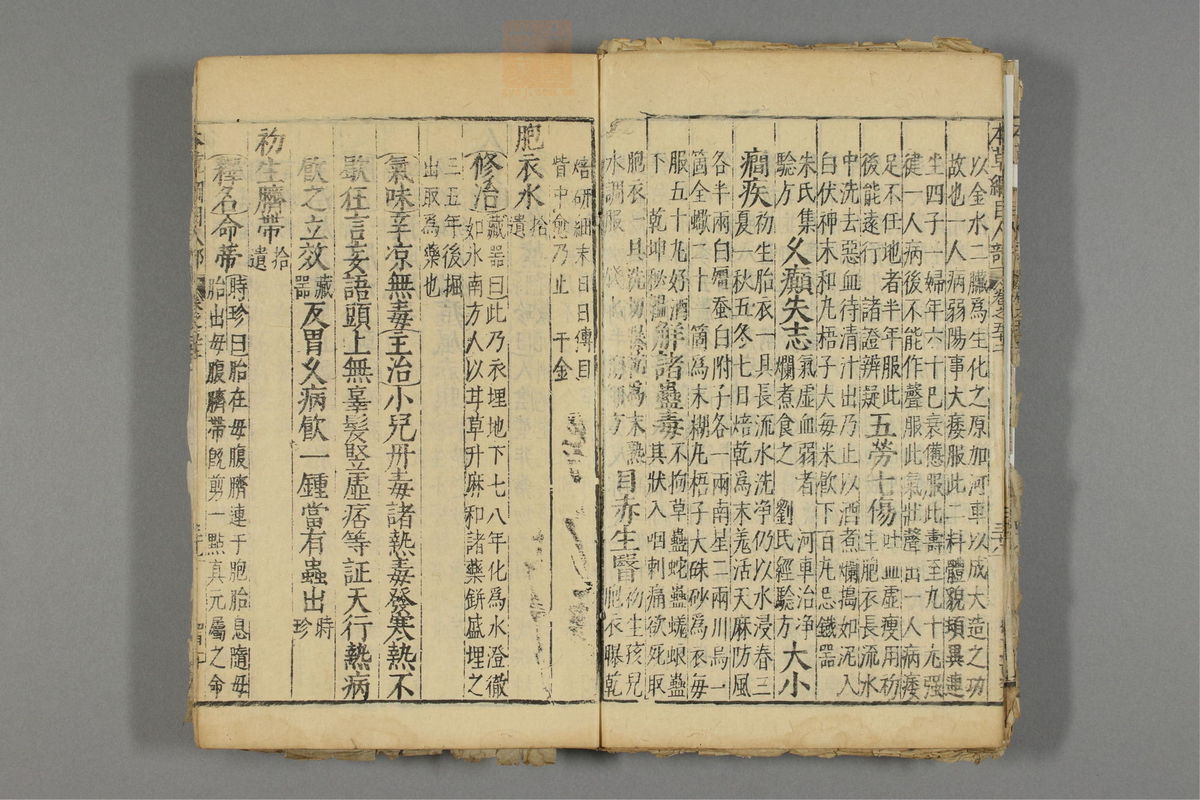 本草綱目人部
以金水二臟為生化之原加河車以成大造之功
故也一人病弱陽事大痿服此二料體貌頓異連
生四子一婦年六十已衰憊服此壽至九十尤强
徤一人病後不能作聲服此氣壯聲出一人病痿
足不任地者半年服此
後能遠行 諸證辨疑 五勞七傷 吐血虛瘦用初生胞衣長流水
中洗去惡血待清汁出乃止以酒煮爛搗如泥入
白伏神末和丸梧子大每米飲下百丸忌鐵器
朱氏集驗方 久癲失志 氣虛血弱者 河車治净
爛煮食之 劉氏經驗方 大小
癎疾 初生胎衣一具長流水洗净仍以水浸春三
夏一秋五冬七日焙乾為末羗活天麻防風
各半兩白殭蚕白附子各一兩南星二兩川烏一
箇全蠍二十一箇為末糊丸梧子大硃砂為衣每
服五十丸好酒下 乾坤秘韞 解諸蠱毒 不拘草蠱蛇蠱蜣蜋蠱
其狀入咽刺痛欲死取
胞衣一具洗切 為末熟
水調服 目赤生瞖 初生孩兒胞衣曝乾
焙研細末日日傅目
皆中愈乃止 千金
胞衣水 拾遺
修治 藏器曰此乃衣埋地下七八年化為水澄徹
如氷南方人以甘草升麻和諸藥缾盛埋之
三五年後掘
出取為藥也
氣味辛凉無毒 主治小兒丹毒諸熱毒發寒熱不
歇狂言妄語頭上無辜髮竪虛痞等証天行熱病
飲之立效 藏器 反胃久病飲一鍾當有蟲出 時珍
初生臍帶 拾遺
釋名命蒂 時珍曰胎在母腹臍連于胞胎息隨母
胎出母腹臍帶旣剪一點真元屬之命